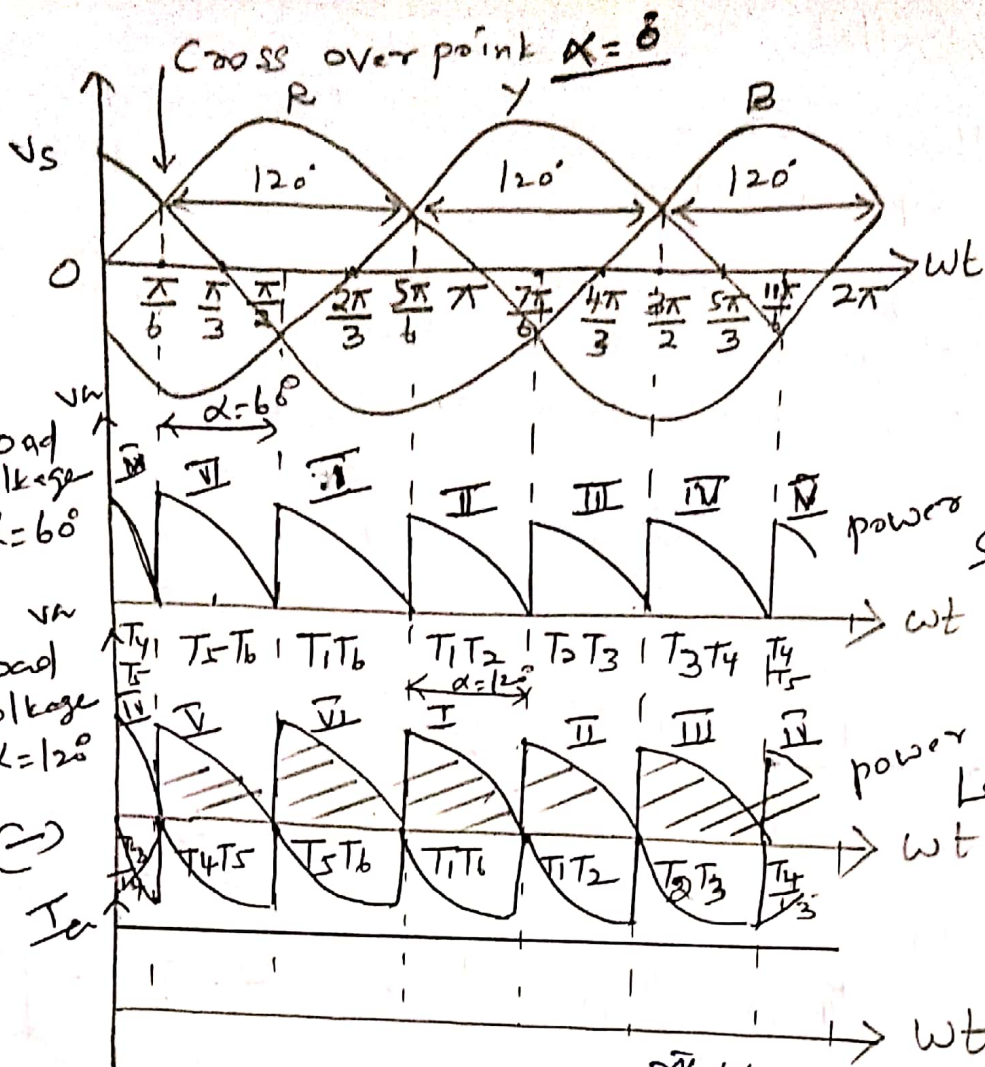 Cross over point α = 0°
R Y B
Vs
120° 120° 120°
0 π/6 π/3 π/2 2π/3 5π/6 π 7π/6 4π/3 3π/2 5π/3 11π/6 2π ωt
Va
α=60°
oad
ltage
α=60°
VI II III IV power
ωt
Va
T4 T5 T5 T6 T1 T6 T1 T2 T2 T3 T3 T4 T4 T5
α=120°
oad
oltage
α=120°
IV V VI I II III IV power
(-)
ωt
T4T5 T5T6 T1T6 T1T2 T2T3 T4 T3
Ia
ωt